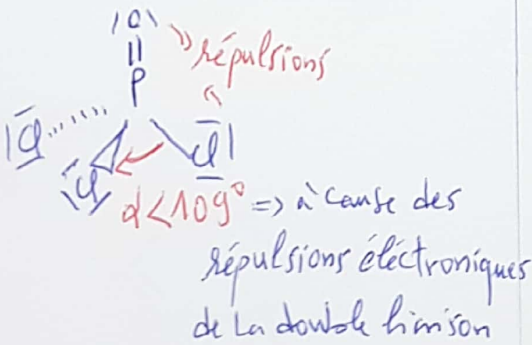 |O|
||
répulsions
P
|Cl Cl Cl|
α<109° => à cause des
répulsions éléctroniques
de la double liaison